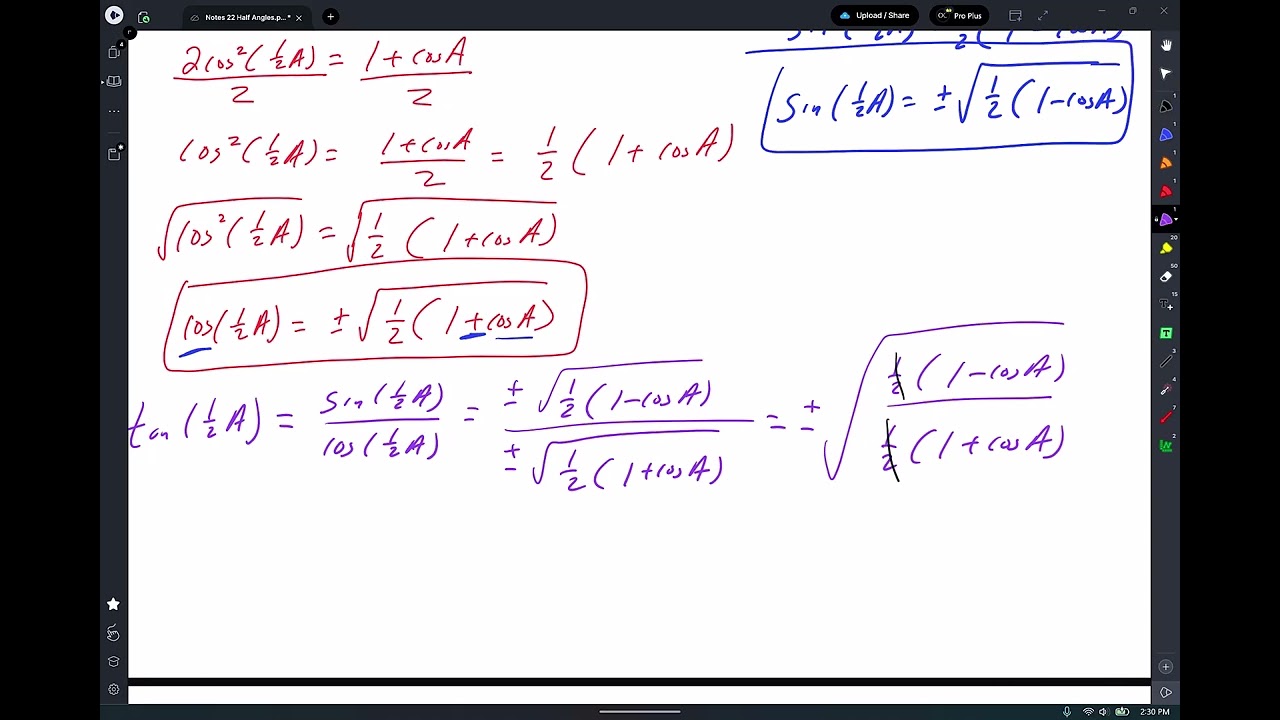 Notes 22 Half Angles.p... *
Upload / Share
Pro Plus
2cos²(½A)/2 = 1+cosA/2
cos²(½A) = 1+cosA/2 = ½(1+cosA)
√cos²(½A) = √½(1+cosA)
cos(½A) = ±√½(1+cosA)
sin(½A) = ±√½(1-cosA)
tan(½A) = sin(½A)/cos(½A) = ±√½(1-cosA)/±√½(1+cosA) = ±√½(1-cosA)/½(1+cosA)
2:30 PM